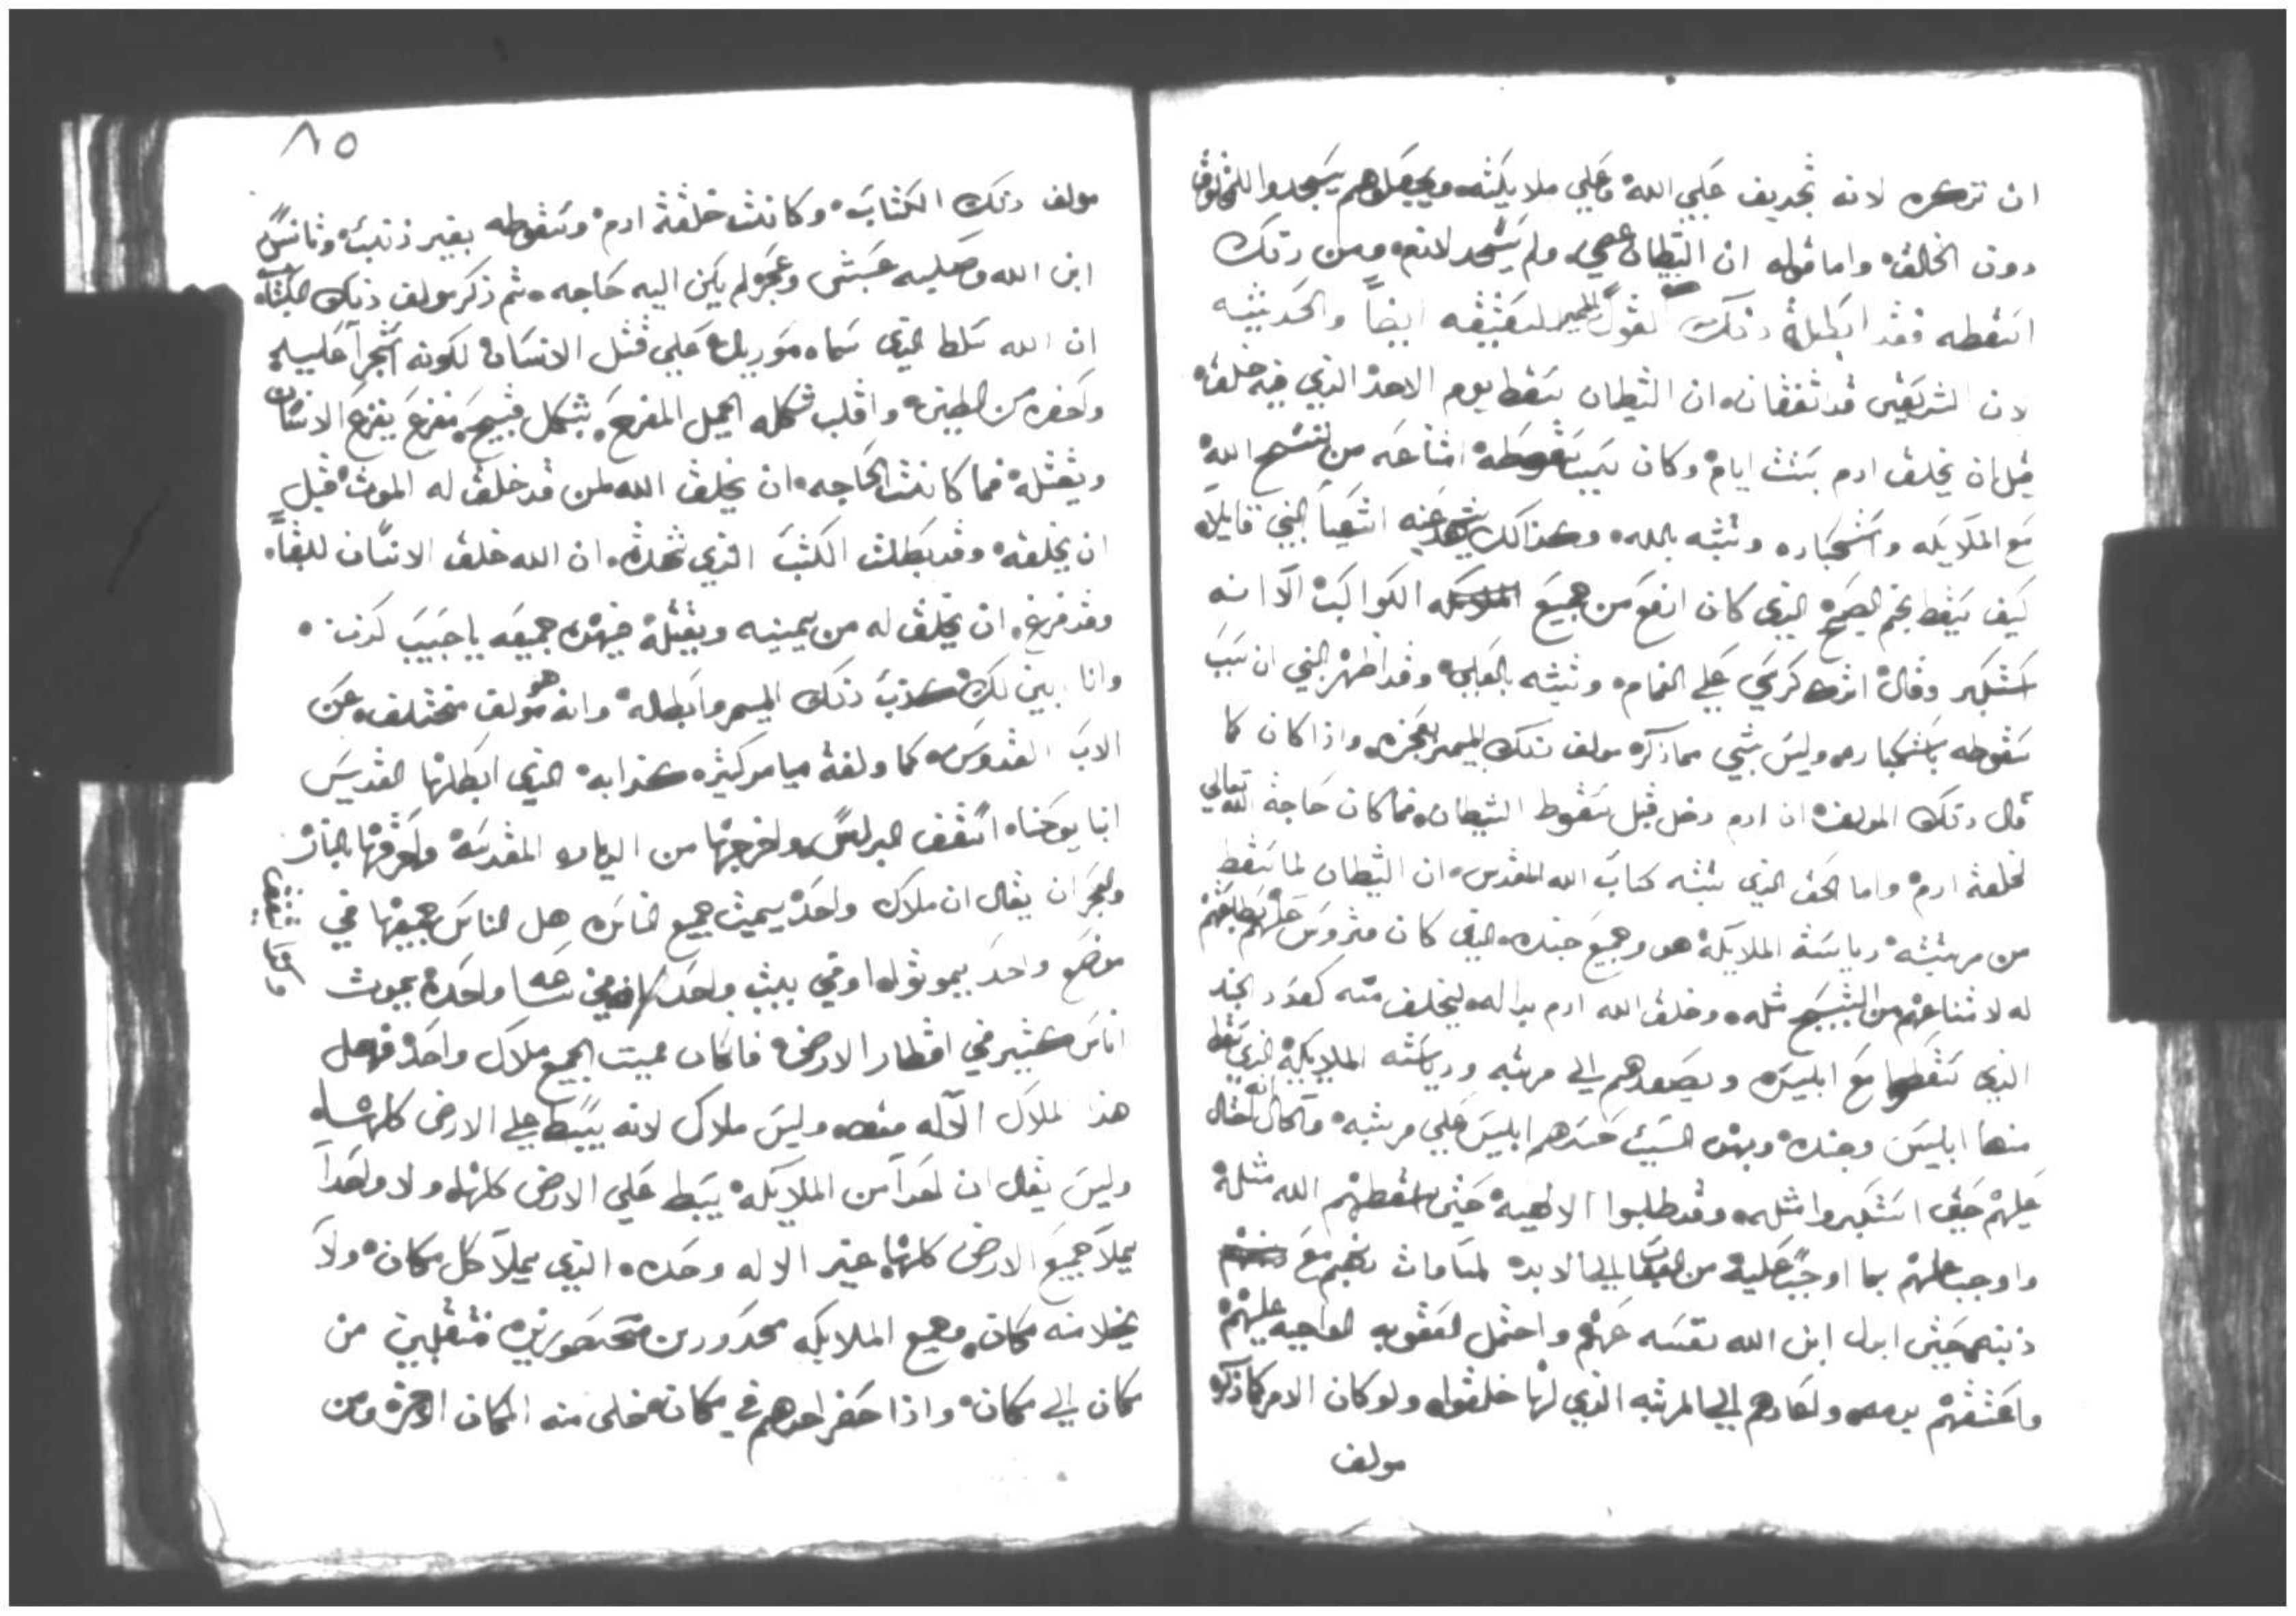 ان نزكره لانه تجديف علي الله وعلي ملايكته ويجعلوهم يسجدوا للمخلوق
دون الخالق واما قوله ان الشيطان عصي ولم يسجد لادم ومن دلك
اسقطه فقد ابطلة دلك القول ايضاً والحديثه
لان الشريعتين قد اتفقتا ان الشيطان سقط يوم الاحد الذي فيه خلقه
قبل ان يخلق ادم بستت ايام وكان سبب سقوطه امتناعه من تسبيح الله
مع الملايكه واستكباره وتشبه بالله وكذالك يشهد عنه اشعيا النبي قايلاً
كيف سقط نجم الصبح الذي كان ارفع من جميع الكواكب الا انه
استكبر وقال اترك كرسي علي الغمام وتشبه بالعلي وقد اظهر النبي ان سبب
سقوطه باستكباره وليس بشي مما ذكره مولف دلك الميمر بفجره واذا كان كما
قال دلك المولف ان ادم دخل قبل سقوط الشيطان فما كان حاجة الله تعالي
لخلقة ادم واما الحق الذي تثبته كتاب الله المقدس ان الشيطان لما سقط
من مرتبته ورياسة الملايكة هو وجميع جنده الذي كان متروس عليهم بطاعتهم
له لامتناعهم من التسبيح مثله وخلق الله ادم بداله ليخلف منه كعدد الجند
الذي سقطوا مع ابليس ويصعدهم الي مرتبه ورياسته الملايكة الذي سقط
منها ابليس وجنده وبهدا السبب حسدهم ابليس علي مرتبه والحال انه احتال
عليهم حتي استكبروا مثله وقد طلبوا الالهية حتي اسقطهم الله مثله
واوجب عليهم بما اوجب عليه من العقاب الي الابد
ابدل ابن الله نفسه عنهم واحتمل العقوبه الواجبه عليهم
واعتقهم بدمه واعادهم الي المرتبه الذي لها خلقوا ولو كان الامر كما ذكره
مولف
٨٥
مولف دلك الكتاب وكانت خلقة ادم وسقوطه بغير ذنب وتانس
ابن الله وصليبه عبثي وعجز لم يكن اليه حاجه ثم ذكر مولف دلك الكتاب
ان الله سلط الذي سماه موريل علي قتل الانسان لكونه اتجرا عليه
واحضره من الطين واقلب شكله الجميل المفرح بشكل قبيح مفزع يفزع الانسان
ويقتله فما كانت الحاجه ان يخلق الله لمن قد خلق له الموت قبل
ان يخلقه وقد بطلت الكتب الذي تحدث ان الله خلق الانسان للبقا
وقد فرغ ان يخلق له من يميته ويقتله فهدا جميعه يا حبيب كدب
وانا ابين لك كدب دلك الميمر وابطاله وانه هو مولف مختلف عن
الاب القدوس كما ولفة ميامر كثيره كدابه الذي ابطلها القديس
انبا يوحنا اسقف البرلس واخرجها من الديار المقدسه واحرقها بالنار
والعجز ان يقال ان ملاك واحد يميت جميع الناس هل الناس جميعها في
موضع واحد يموتوا او في بيت واحد في ساعه واحده يموت
اناس كثير في اقطار الارض فاكان مميت الجميع ملاك واحد فهل
هذا الملاك الاله منه وليس ملاك لانه يبسط علي الارض كلها
وليس يقال ان احداً من الملايكه يبسط علي الارض كلها ولا واحداً
يملا جميع الارض كلها غير الاله وحده الذي يملا كل مكان ولا
يخلا منه مكان وجميع الملايكه محدودين متحصورين منتقلين من
مكان الي مكان واذا حضر احدهم في مكان خلي منه المكان الاخر ومن